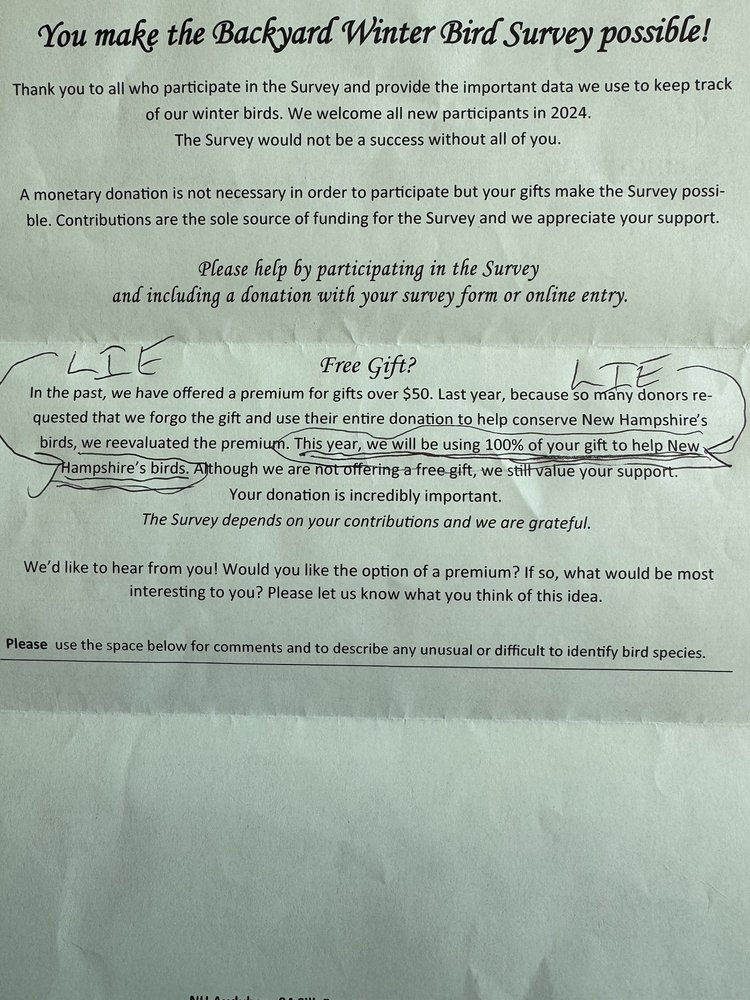 You make the Backyard Winter Bird Survey possible!
Thank you to all who participate in the Survey and provide the important data we use to keep track
of our winter birds. We welcome all new participants in 2024.
The Survey would not be a success without all of you.
A monetary donation is not necessary in order to participate but your gifts make the Survey possi-
ble. Contributions are the sole source of funding for the Survey and we appreciate your support.
Please help by participating in the Survey
and including a donation with your survey form or online entry.
LIE
LIE
Free Gift?
In the past, we have offered a premium for gifts over $50. Last year, because so many donors re-
quested that we forgo the gift and use their entire donation to help conserve New Hampshire's
birds, we reevaluated the premium. This year, we will be using 100% of your gift to help New
Hampshire's birds. Although we are not offering a free gift, we still value your support.
Your donation is incredibly important.
The Survey depends on your contributions and we are grateful.
We'd like to hear from you! Would you like the option of a premium? If so, what would be most
interesting to you? Please let us know what you think of this idea.
Please use the space below for comments and to describe any unusual or difficult to identify bird species.